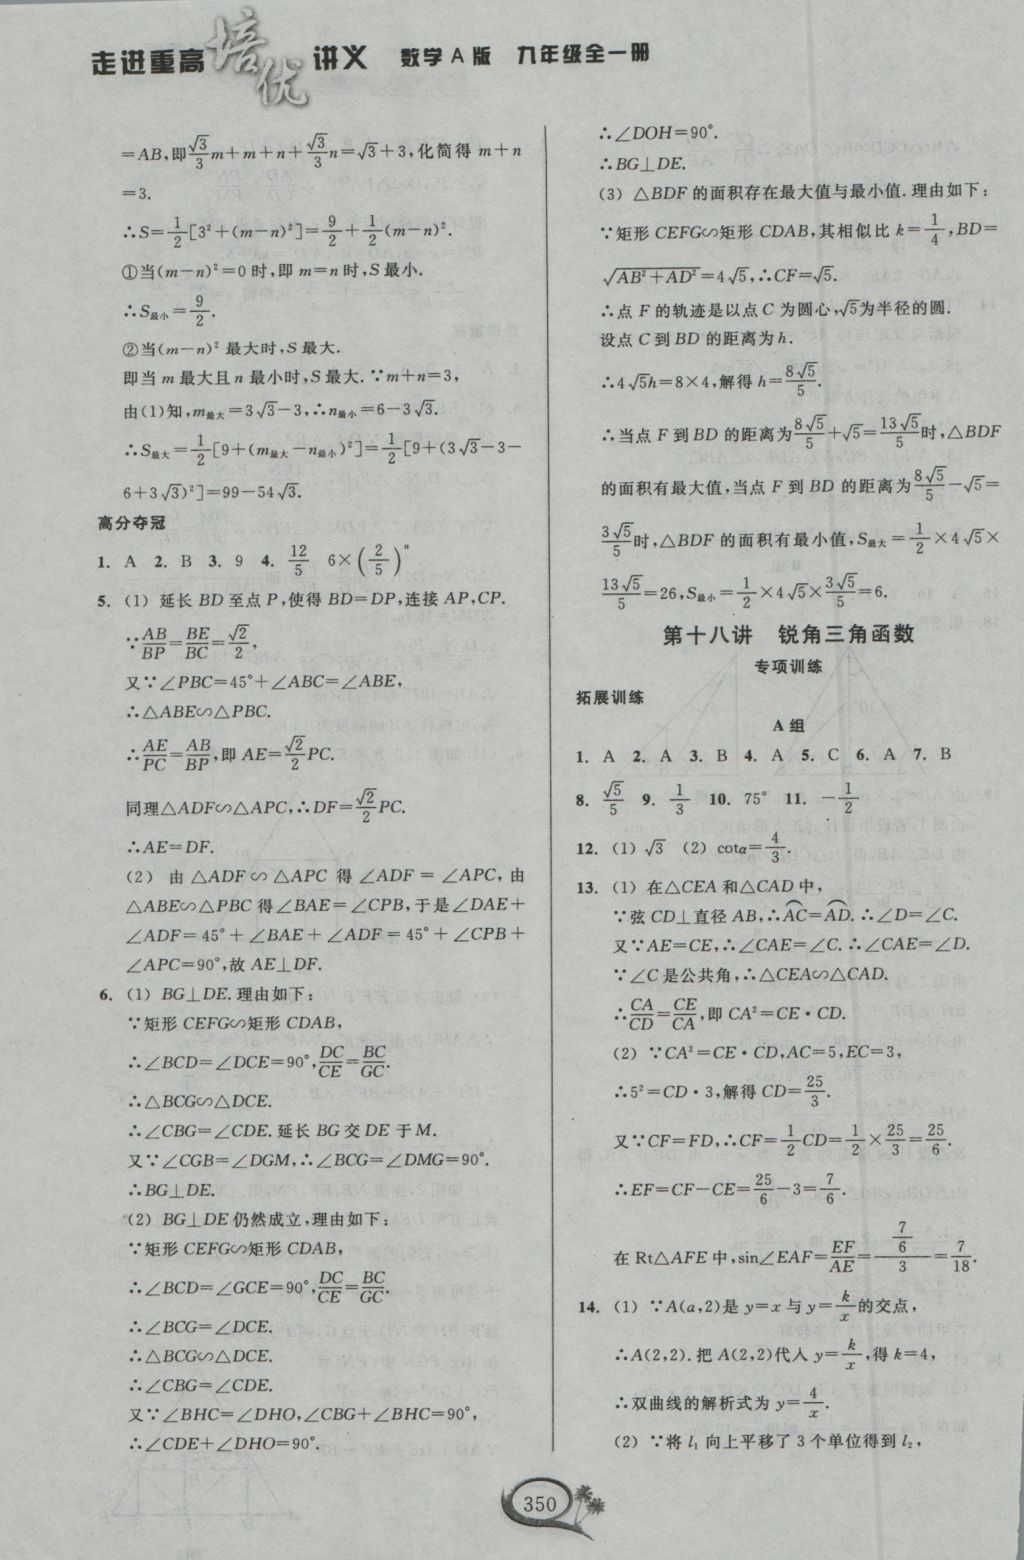 走进重高 培优 讲义 数学A版 九年级全一册
=AB,即√3/3m+m+n+√3/3n=√3+3,化简得 m+n
=3.
∴S=1/2[3²+(m-n)²]=9/2+1/2(m-n)².
①当(m-n)²=0时,即m=n时,S最小.
∴S最小=9/2.
②当(m-n)²最大时,S最大.
即当m最大且n最小时,S最大.∵m+n=3,
由(1)知,m最大=3√3-3,∴n最小=6-3√3.
∴S最大=1/2[9+(m最大-n最小)²]=1/2[9+(3√3-3-
6+3√3)²]=99-54√3.
高分夺冠
1. A 2. B 3. 9 4. 12/5 6×(2/5)ⁿ
5. (1) 延长BD至点P,使得BD=DP,连接AP,CP.
∵AB/BP=BE/BC=√2/2,
又∵∠PBC=45°+∠ABC=∠ABE,
∴△ABE∽△PBC.
∴AE/PC=AB/BP,即AE=√2/2PC.
同理△ADF∽△APC,∴DF=√2/2PC.
∴AE=DF.
(2) 由△ADF∽△APC得∠ADF=∠APC,由
△ABE∽△PBC得∠BAE=∠CPB,于是∠DAE+
∠ADF=45°+∠BAE+∠ADF=45°+∠CPB+
∠APC=90°,故AE⊥DF.
6. (1) BG⊥DE.理由如下:
∵矩形CEFG∽矩形CDAB,
∴∠BCD=∠DCE=90°,DC/CE=BC/GC.
∴△BCG∽△DCE.
∴∠CBG=∠CDE.延长BG交DE于M.
又∵∠CGB=∠DGM,∴∠BCG=∠DMG=90°.
∴BG⊥DE.
(2) BG⊥DE仍然成立,理由如下:
∵矩形CEFG∽矩形CDAB,
∴∠BCD=∠GCE=90°,DC/CE=BC/GC.
∴∠BCG=∠DCE.
∴△BCG∽△DCE.
∴∠CBG=∠CDE.
又∵∠BHC=∠DHO,∠CBG+∠BHC=90°,
∴∠CDE+∠DHO=90°.
∴∠DOH=90°.
∴BG⊥DE.
(3) △BDF的面积存在最大值与最小值.理由如下:
∵矩形CEFG∽矩形CDAB,其相似比k=1/4,BD=
√(AB²+AD²)=4√5,∴CF=√5.
∴点F的轨迹是以点C为圆心,√5为半径的圆.
设点C到BD的距离为h.
∴4√5h=8×4,解得h=8√5/5.
∴当点F到BD的距离为8√5/5+√5=13√5/5时,△BDF
的面积有最大值,当点F到BD的距离为8√5/5-√5=
3√5/5时,△BDF的面积有最小值,S最大=1/2×4√5×
13√5/5=26,S最小=1/2×4√5×3√5/5=6.
第十八讲 锐角三角函数
专项训练
拓展训练
A组
1. A 2. A 3. B 4. A 5. C 6. A 7. B
8. √5/5 9. 1/3 10. 75° 11. -1/2
12. (1) √3 (2) cotα=4/3.
13. (1) 在△CEA和△CAD中,
∵弦CD⊥直径AB,∴A͡C=A͡D.∴∠D=∠C.
又∵AE=CE,∴∠CAE=∠C.∴∠CAE=∠D.
∵∠C是公共角,∴△CEA∽△CAD.
∴CA/CD=CE/CA,即CA²=CE·CD.
(2) ∵CA²=CE·CD,AC=5,EC=3,
∴5²=CD·3,解得CD=25/3.
又∵CF=FD,∴CF=1/2CD=1/2×25/3=25/6.
∴EF=CF-CE=25/6-3=7/6.
在Rt△AFE中,sin∠EAF=EF/AE=(7/6)/3=7/18.
14. (1) ∵A(a,2)是y=x与y=k/x的交点,
∴A(2,2).把A(2,2)代入y=k/x,得k=4,
∴双曲线的解析式为y=4/x.
(2) ∵将l₁向上平移了3个单位得到l₂,
350